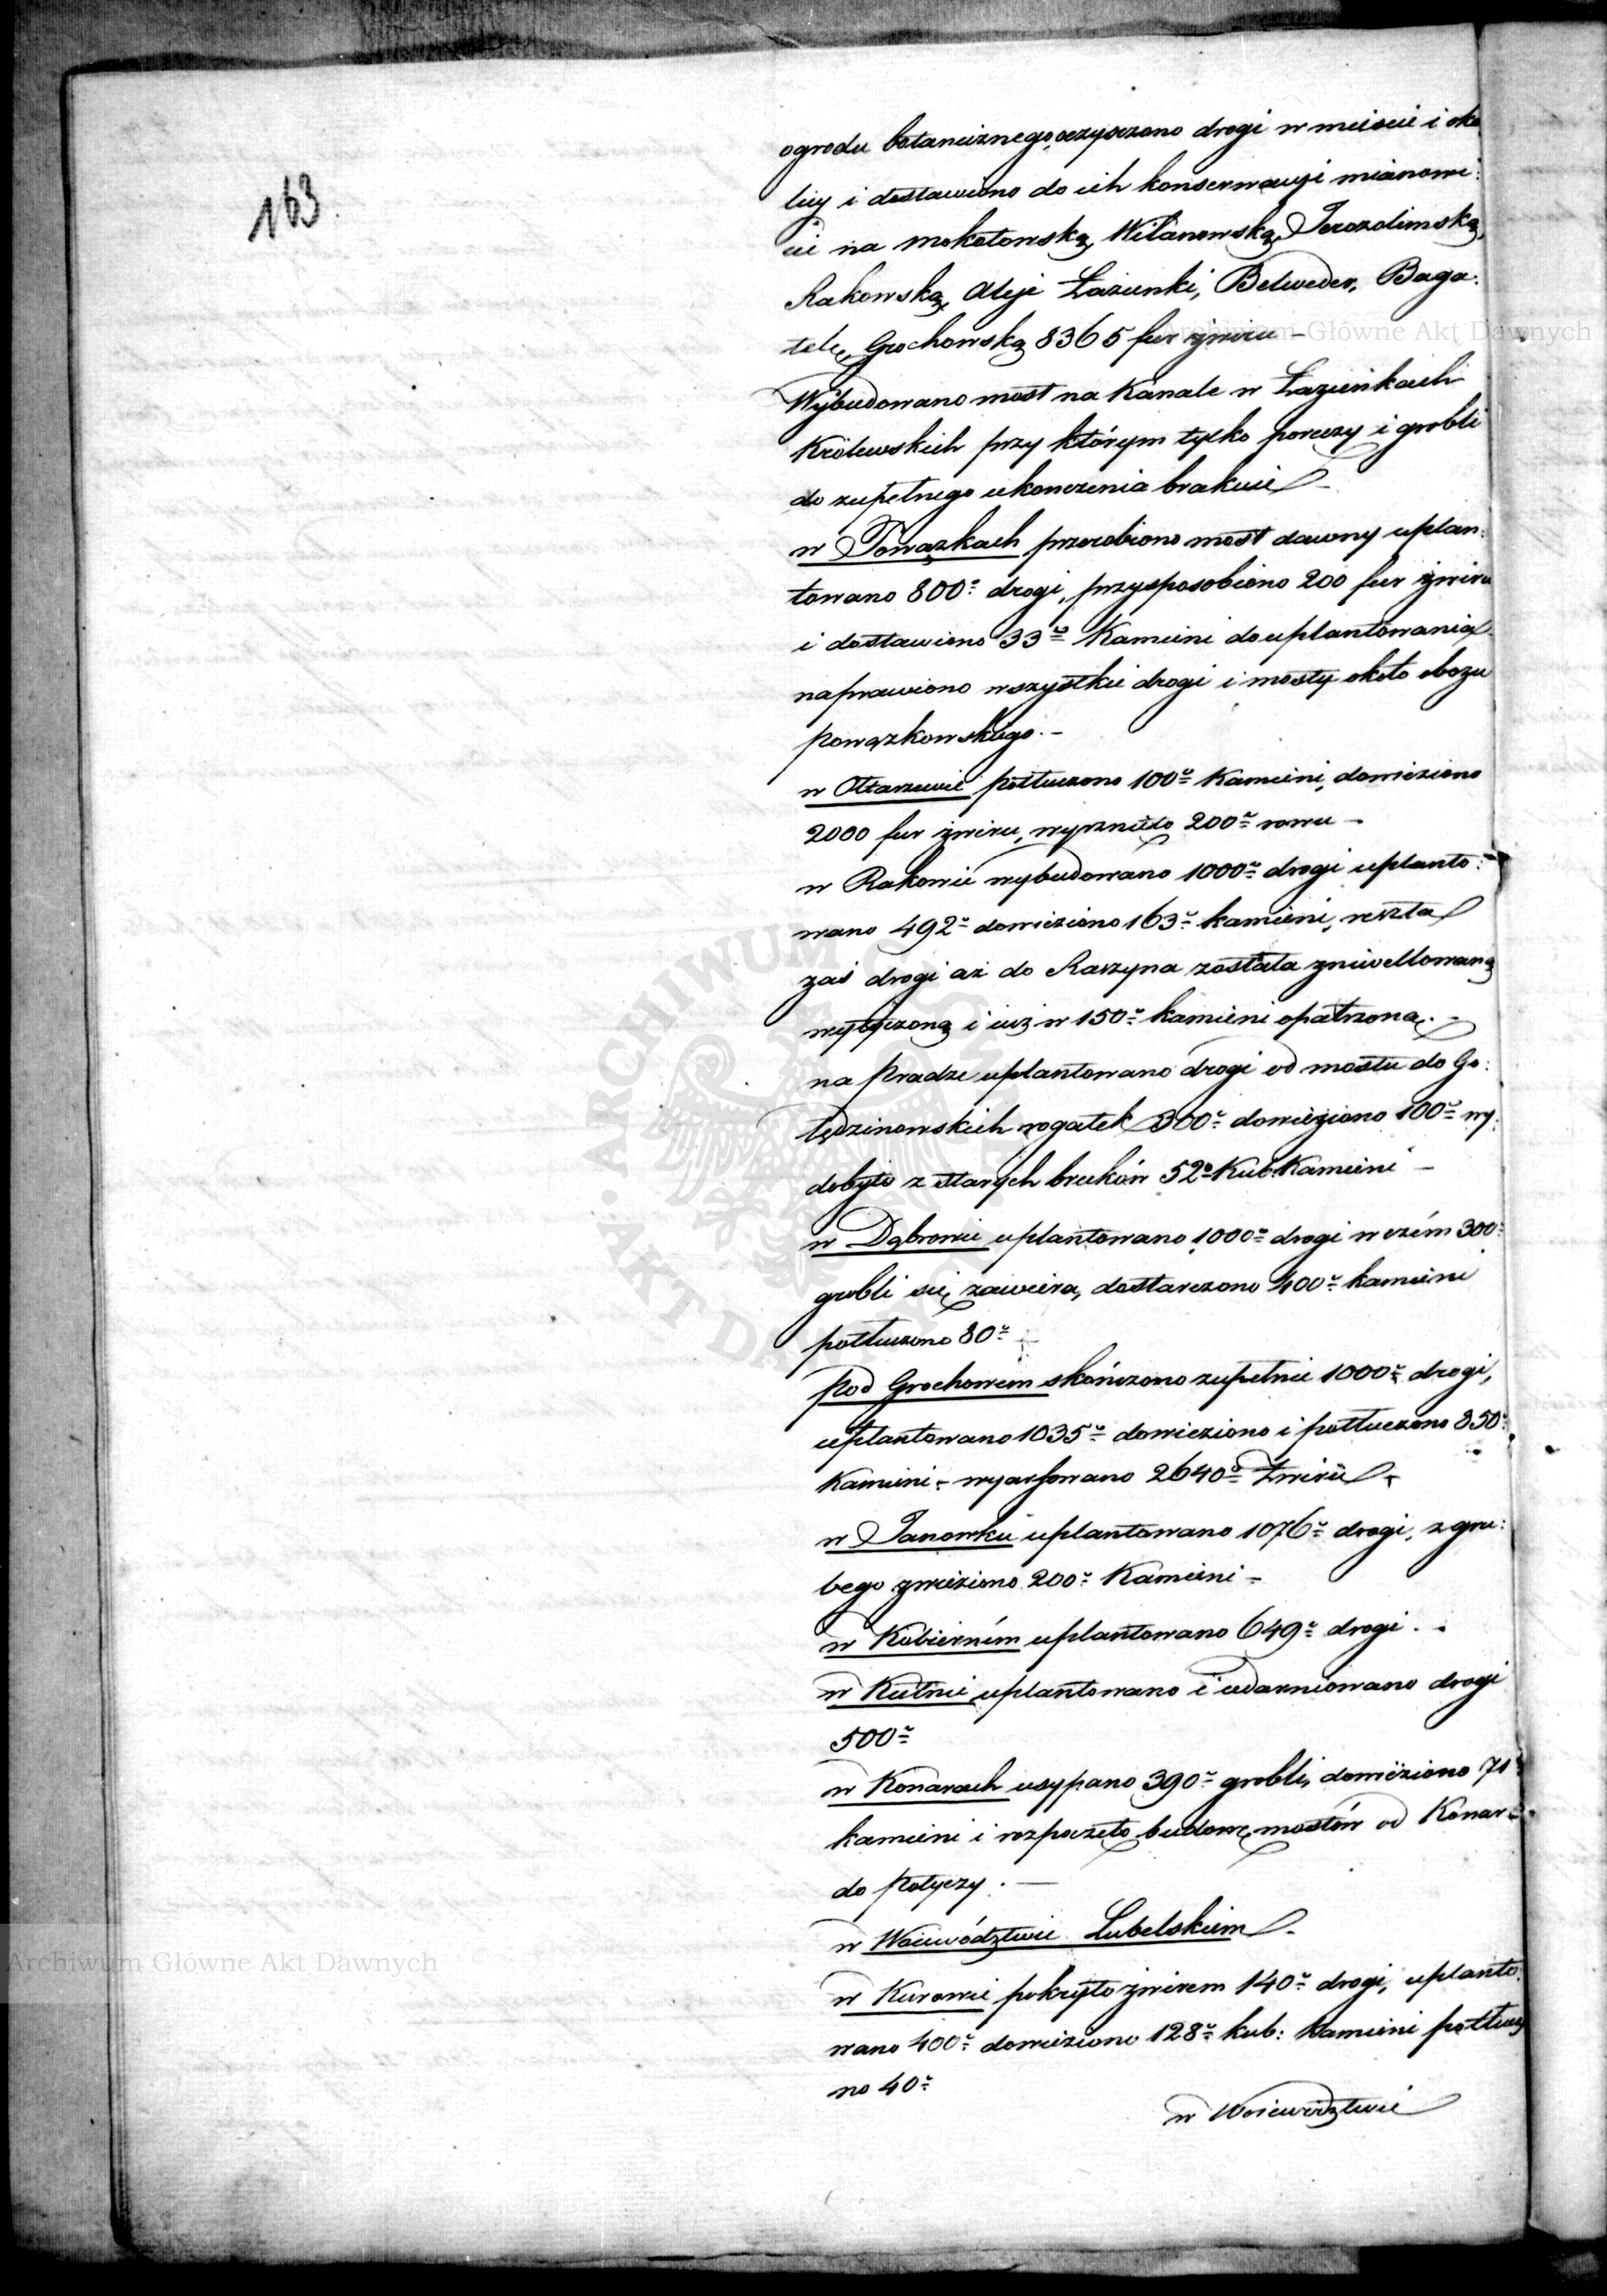 163.
ogrodu botanicznego, oczyszczono drogi w mieście i oko
licy i dostawiono do ich konserwacyi mianowi:
cie na Mokotowską, Wilanowską, Jerozolimską,
Rakowską, Aleje Łazienki, Belweder, Baga:
telę, Grochowską 8365 fur żwiru –
Wybudowano most na Kanale w Łazienkach
Królewskich przy którym tylko poręczy i grobli
do zupełnego ukonczenia brakuie –
w Powązkach przerobiono most dawny uplan:
towano 800 drogi, przysposobiono 200 fur żwiru
i dostawiono 33 Kamieni do uplantowania
naprawiono wszystkie drogi i mosty około obozu
powązkowskiego. –
w Ołtarzewie potłuczono 100 Kamieni, dowieziono
2000 fur żwiru, wyrznięto 200 rowu –
w Rakowie wybudowano 1000 drogi uplanto:
wano 492 dowieziono 163 kamieni, reszta
zaś drogi aż do Raszyna została zniwellowaną
wytyczoną i iuż w 150 kamieni opatrzoną. –
na Pradze uplantowano drogi od mostu do Go:
lędzinowskich rogatek 300 dowieziono 100 wy:
dobyto z starych bruków 52 Kub. Kamieni –
w Dąbrowie uplantowano 1000 drogi w czém 300
grobli się zawiera, dostarczono 400 kamieni
potłuczono 80
pod Grochowem skończono zupełnie 1000 drogi,
uplantowano 1035 dowieziono i potłuczono 850
Kamieni – wyarfowano 2640 Żwiru –
w Janowku uplantowano 1076 drogi, z gru:
bego zwieziono 200 Kamieni –
w Kobierném uplantowano 649 drogi. –
w Kutnie uplantowano i udarniowano drogi
500
w Konarach usypano 390 grobli, dowieziono 71
kamieni i rozpoczęto budowę mostów od Konar
do Potyczy. —
w Woiewództwie Lubelskiem –
w Kurowie pokryto żwirem 140 drogi, uplanto:
wano 400 dowieziono 128 kub: Kamieni potłuczo
no 40
w Woiewództwie
Archiwum Główne Akt Dawnych
Archiwum Główne Akt Dawnych